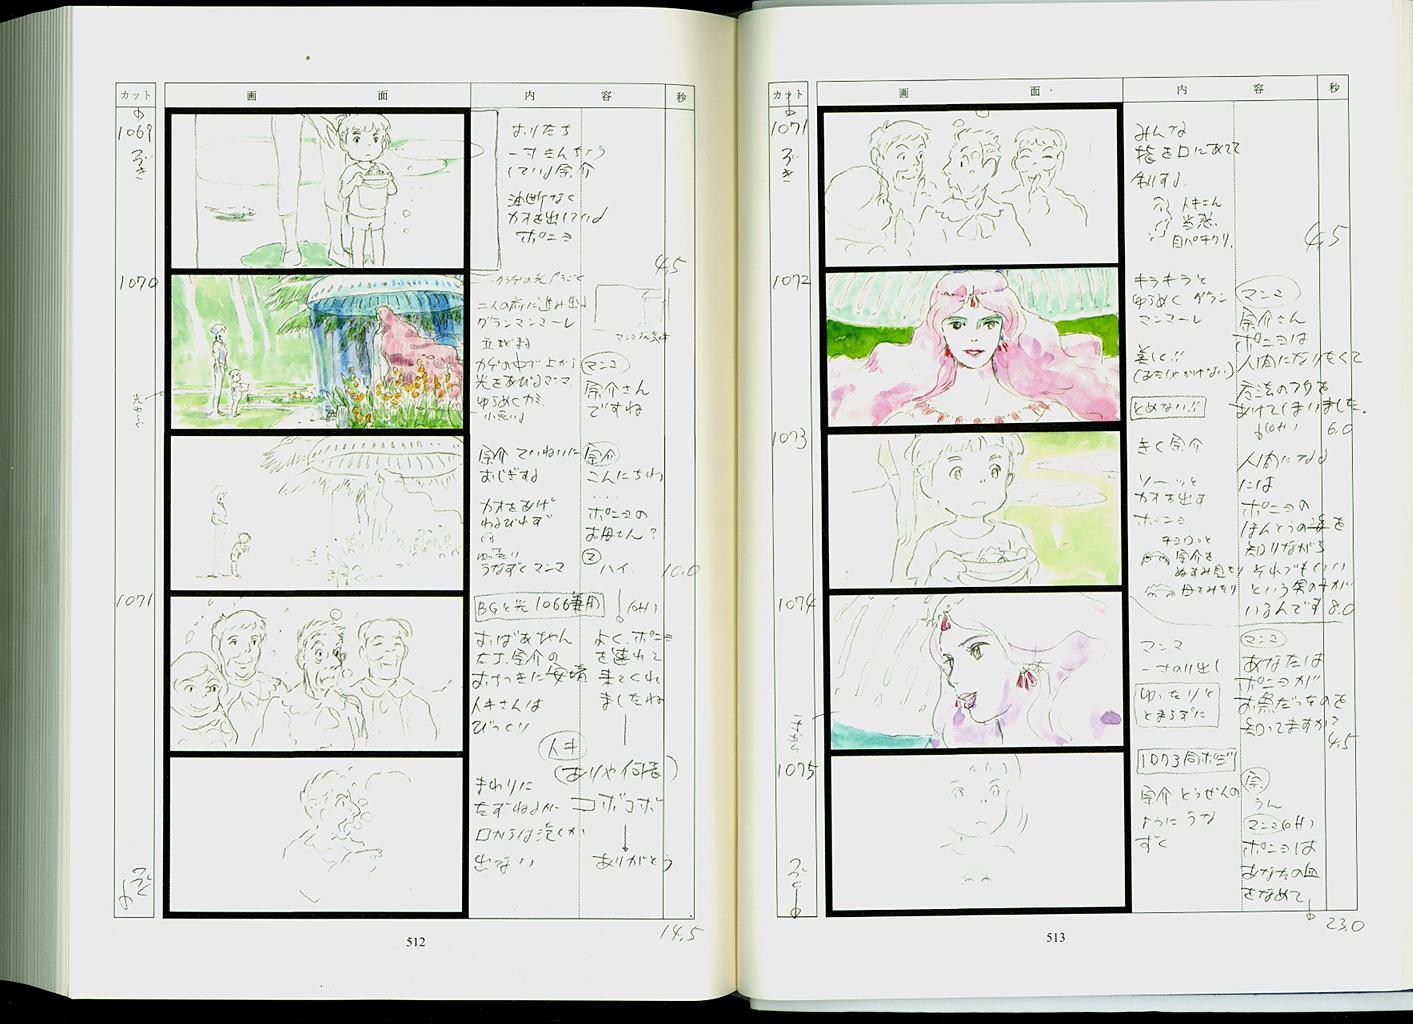 カット
画
面
内
容
秒
1069
つづき
おりたち
一寸きんちょう
している宗介
油断なく
カオを出している
ポニョ
4.5
1070
クラゲの光 うごく
二人の前に進み出
グランマンマーレ
立ち止る
カゲの中で上から
光をあびるマンマ
ゆらめくが
マンマ
宗介さん
ですね
宗介 ていねいに
おじぎする
カオをあげ
わるびれず
ゆったり
うなずくマンマ
宗介
こんにちわ
‥‥
ポニョの
お母さん?
マ
ハイ
10.0
1071
BGと光1066兼用
おばあちゃん
たち、宗介の
おちつきに安堵
トキさんは
びっくり
(OFF)
よく、ポニョ
を連れて
来てくれ
ましたね
トキ
(ありゃ何だ)
まわりに
たずねるが
口からは泡しか
出ない
コボコボ
ありがとう
14.5
512
カット
画
面
内
容
秒
1071
つづき
みんな
指を口にあてて
制する
トキさん
当惑
目パチクリ
4.5
1072
キラキラと
ゆらめく グラン
マンマーレ
美しく!!
とめない!!
マンマ
宗介さん
ポニョは
人間になりたくて
方法のフタを
あけてしまいました。
(OFF)
6.0
1073
きく宗介
ソーッと
カオを出す
ポニョ
チョロっと
宗介を
ぬすみ見たり
母をみたり
人間になる
には
ポニョの
ほんとうの姿を
知りながら
それでもいい
という男の子が
いるんです
8.0
1074
マンマ
一寸のり出し
ゆったりと
とまらずに
マンマ
あなたは
ポニョが
お魚だったのを
知ってますか?
4.5
1075
1073同ポジ
宗介 とうぜんの
ように うな
ずく
宗
うん
マンマ(OFF)
ポニョは
あなたの血
をなめて
つづく
23.0
513